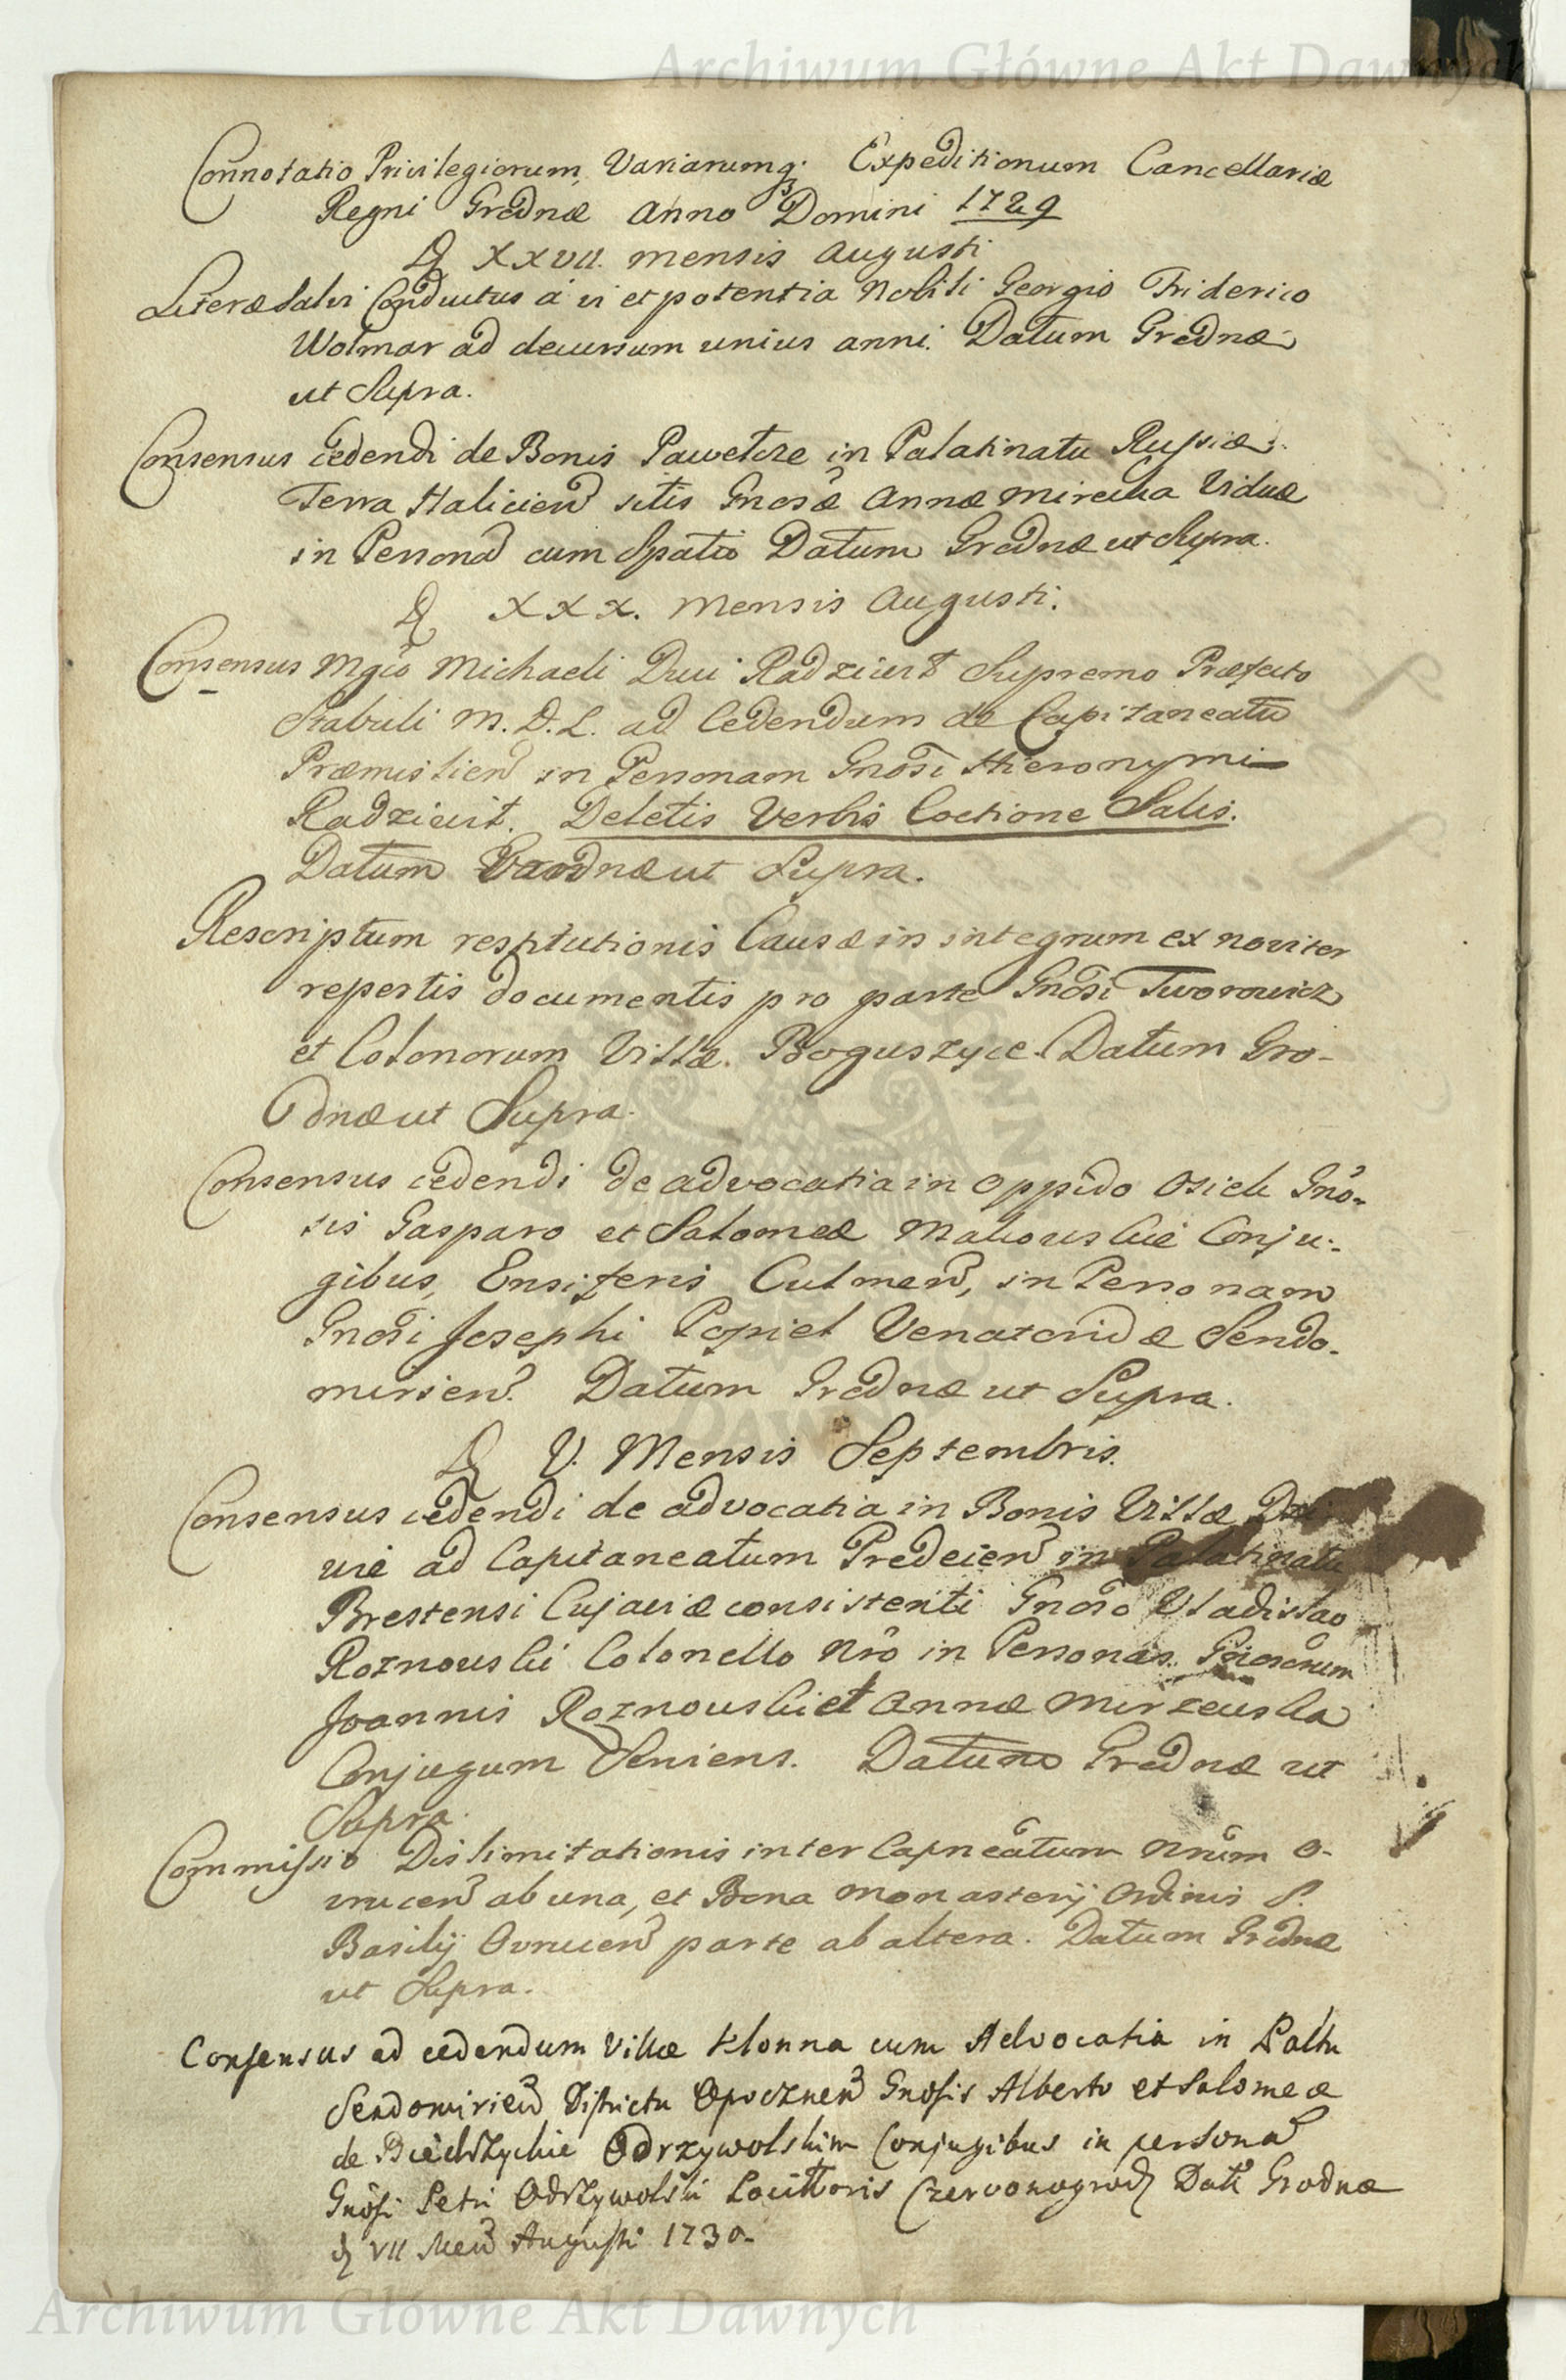 Archiwum Główne Akt Dawnych
Connotatio Privilegiorum, Variarumq; Expeditionum Cancellariæ
Regni Grodnæ Anno Domini 1729
D XXVII. mensis Augusti
Literæ Salvi Conductus a vi et potentia Nobili Georgio Friderico
Wolmar ad decursum unius anni. Datum Grodnæ
ut Supra.
Consensus cedendi de Bonis Pawelcze in Palatinatu Russiæ
Terra Halicien sitis Gnosæ Annæ Mirecka Viduæ
in Personam cum Spatio Datum Grodnæ ut Supra.
D XXX. Mensis Augusti.
Consensus Mgco Michaeli Duci Radziwił Supremo Præfecto
Stabuli M. D. L. ad Cedendum de Capitaneatu
Præmislien in Personam Gnosi Hieronymi
Radziwił. Deletis Verbis Coctione Salis.
Datum Grodnæ ut Supra.
Rescriptum restitutionis Causæ in integrum ex noviter
repertis documentis pro parte Gnosi Tworowicz
et Colonorum Villæ Boguszyce. Datum Gro-
dnæ ut Supra.
Consensus cedendi de advocatia in oppido Osiek Gno-
sis Gasparo et Salomeæ Makowskie Conju-
gibus, Ensiferis Culmen, in Personam
Gnosi Josephi Popiel Venatoridæ Sendo-
mirien. Datum Grodnæ ut Supra.
D V. Mensis Septembris.
Consensus cedendi de advocatia in Bonis Villæ
ad Capitaneatum Predecien in Palatinatu
Brestensi Cujaviæ consistenti Gnoso Vladislao
Roznowski Colonello Nro in Personas Gnosorum
Joannis Roznowski et Annæ Mirzewska
Conjugum Datum Grodnæ ut
Supra.
Commissio Dislimitationis inter Capneatum Nrum O-
vrucen ab una, et Bona Monasterij Ordinis S.
Basilij Ovrucen parte ab altera. Datum Grodnæ
ut Supra.
Consensus ad cedendum Villæ Klonna cum Advocatia in Palttu
Sendomirien Districtu Opocznen Gnosis Alberto et Salomeæ
de Odrzywolskim Conjugibus in persona
Gnosi Petri Odrzywolski Czervonogrod Datt Grodnæ
D VII Men Augusti 1730.
Archiwum Główne Akt Dawnych